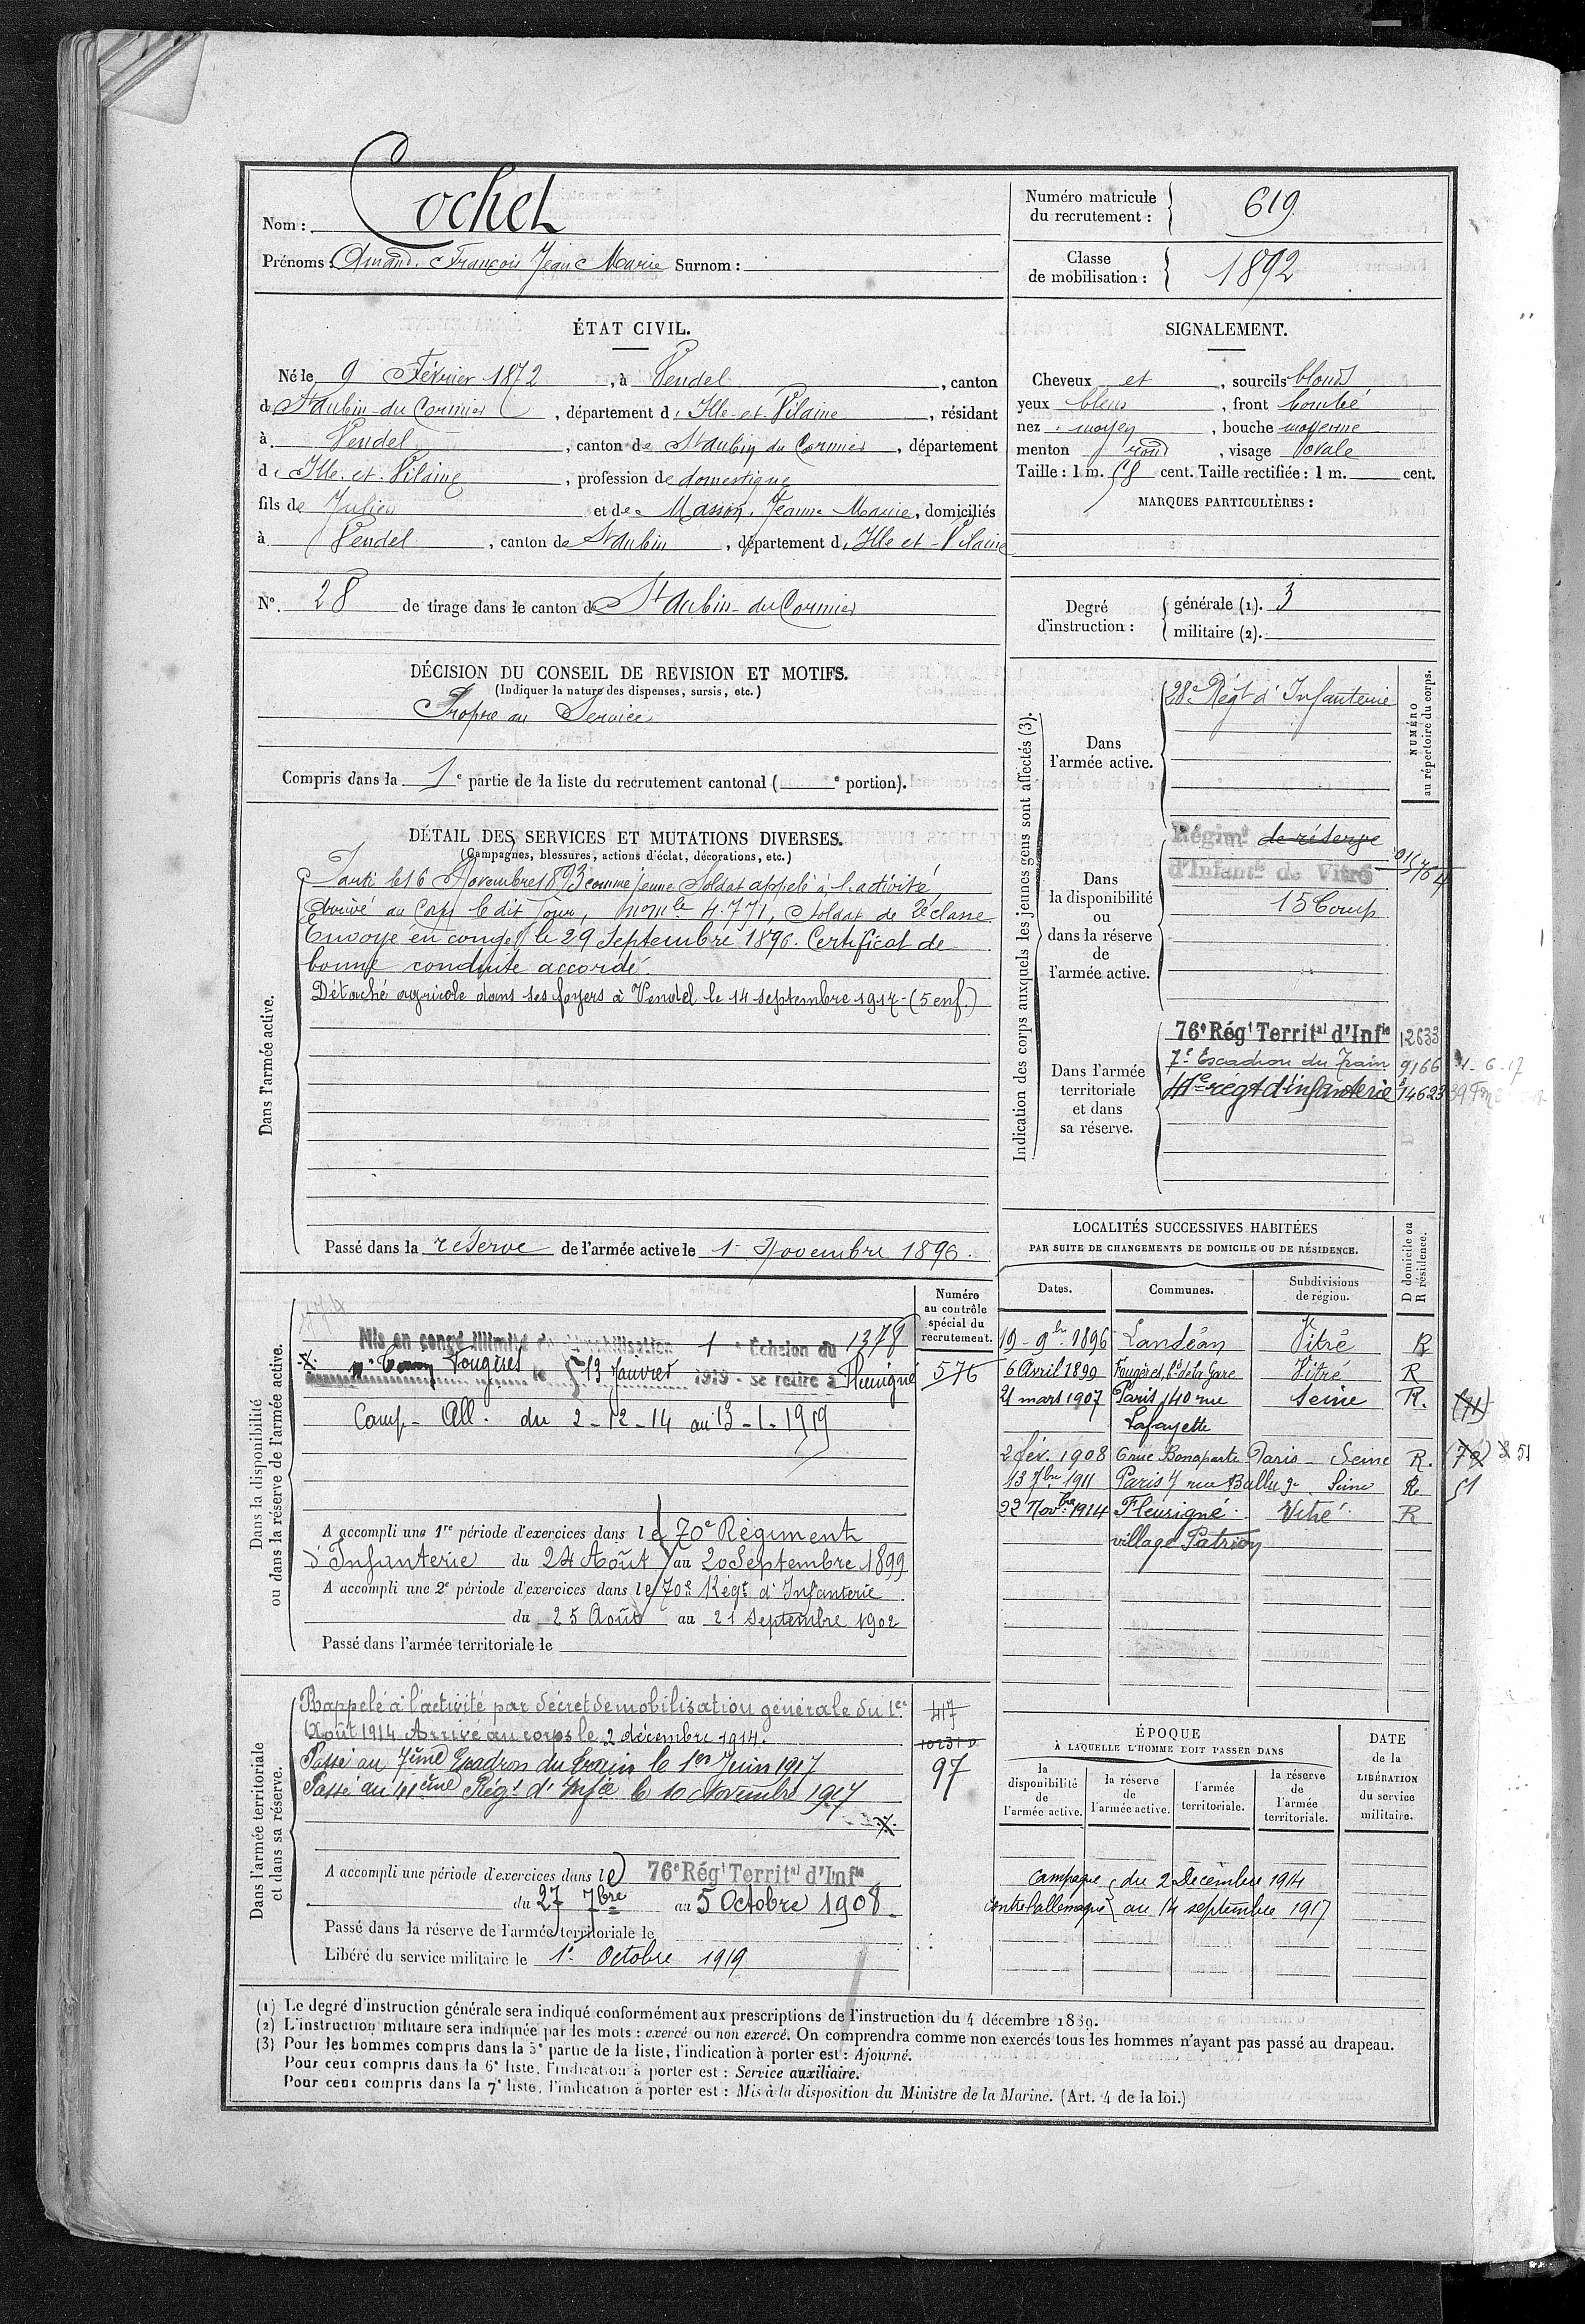 Nom : Cochet
Prénoms : Amand François Jean Marie Surnom :
Numéro matricule du recrutement : 619
Classe de mobilisation : 1892
ÉTAT CIVIL.
Né le 9 Février 1872, à Vendel, canton
de St Aubin-du-Cormier, département d'Ille-et-Vilaine, résidant
à Vendel, canton de St Aubin du Cormier, département
d'Ille-et-Vilaine, profession de domestique
fils de Julien et de Masson, Jeanne Marie, domiciliés
à Vendel, canton de St Aubin, département d'Ille et-Vilaine
N° 28 de tirage dans le canton de St Aubin-du-Cormier
SIGNALEMENT.
Cheveux et, sourcils blonds
yeux bleus, front bombé
nez moyen, bouche moyenne
menton rond, visage ovale
Taille : 1 m. 58 cent. Taille rectifiée : 1 m. cent.
MARQUES PARTICULIÈRES :
Degré d'instruction : générale (1). 3
militaire (2).
DÉCISION DU CONSEIL DE REVISION ET MOTIFS.
(Indiquer la nature des dispenses, sursis, etc.)
Propre au Service
Compris dans la 1e partie de la liste du recrutement cantonal ( e portion).
DÉTAIL DES SERVICES ET MUTATIONS DIVERSES.
(Campagnes, blessures, actions d'éclat, décorations, etc.)
Dans l'armée active.
Parti le 16 Novembre 1893 comme jeune Soldat appelé à l'activité,
Arrivé au Corps le dit Jour, no mle 4.771, Soldat de 2e classe
Envoyé en congé le 29 Septembre 1896. Certificat de
bonne conduite accordé.
Détaché agricole dans ses foyers à Vendel le 14 septembre 1917-(5 enf.)
Passé dans la réserve de l'armée active le 1 Novembre 1896.
Indication des corps auxquels les jeunes gens sont affectés (3).
NUMÉRO au répertoire du corps.
Dans l'armée active.
28e Régt d'Infanterie
Dans la disponibilité ou dans la réserve de l'armée active.
Régimt de réserve
d'Infantie de Vitré
15 Comp
Dans l'armée territoriale et dans sa réserve.
76e Régt Territal d'Infie 12633
7e Escadron du Train 9166 1-6-17
41e régt d'infanterie 14623
Dans la disponibilité ou dans la réserve de l'armée active.
Numéro au contrôle spécial du recrutement.
Mis en congé illimité de démobilisation 1 e Échelon du 1378
Fougères le 13 Janvier 1919 - se retire à Fleurigné 576
Camp- All. du 2-12-14 au 13-1-1919
A accompli une 1re période d'exercices dans le 70e Régiment
d'Infanterie du 24 Août au 20 Septembre 1899
A accompli une 2e période d'exercices dans le 70e Régt d'Infanterie
du 25 Août au 21 Septembre 1902
Passé dans l'armée territoriale le
LOCALITÉS SUCCESSIVES HABITÉES
PAR SUITE DE CHANGEMENTS DE DOMICILE OU DE RÉSIDENCE.
Dates. Communes. Subdivisions de région. D domicile ou R résidence.
19-9bre 1896 Landéan Vitré R
6 Avril 1899 Fougères, Bd de la Gare Vitré R
21 mars 1907 Paris 140 rue Lafayette Seine R. (71)
2 fév. 1908 6 rue Bonaparte Paris - Seine R. 51
13 7bre 1911 Paris 4 rue Ballu 9e Seine R 51
22 Novbre 1914 Fleurigné Vitré R
village Patrion
Dans l'armée territoriale et dans sa réserve.
Rappelé à l'activité par décret de mobilisation générale du 1er 417
Août 1914 Arrivé au corps le 2 décembre 1914.
Passé au 7ème Escadron du train le 1er Juin 1917 97
Passé au 41ème Régt d'Infie le 10 Novembre 1917
A accompli une période d'exercices dans le 76e Régt Territal d'Infie
du 27 7bre au 5 Octobre 1908
Passé dans la réserve de l'armée territoriale le
Libéré du service militaire le 1er Octobre 1919
ÉPOQUE
À LAQUELLE L'HOMME DOIT PASSER DANS
la disponibilité de l'armée active.
la réserve de l'armée active.
l'armée territoriale.
la réserve de l'armée territoriale.
DATE de la LIBÉRATION du service militaire.
campagne du 2 Décembre 1914
contre l'allemagne au 14 septembre 1917
(1) Le degré d'instruction générale sera indiqué conformément aux prescriptions de l'instruction du 4 décembre 1889.
(2) L'instruction militaire sera indiquée par les mots : exercé ou non exercé. On comprendra comme non exercés tous les hommes n'ayant pas passé au drapeau.
(3) Pour les hommes compris dans la 5e partie de la liste, l'indication à porter est : Ajourné.
Pour ceux compris dans la 6e liste, l'indication à porter est : Service auxiliaire.
Pour ceux compris dans la 7e liste, l'indication à porter est : Mis à la disposition du Ministre de la Marine. (Art. 4 de la loi.)